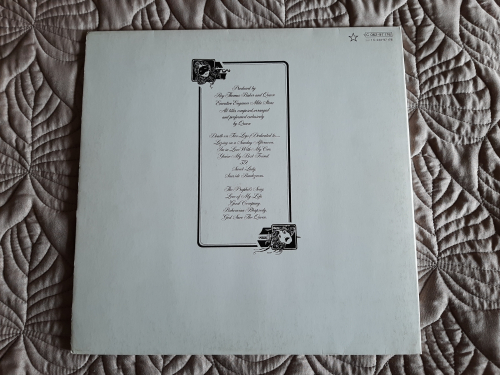 Produced by
Roy Thomas Baker and Queen
Executive Engineer Mike Stone
All titles composed arranged
and performed exclusively
by Queen
Death on Two Legs (Dedicated to....
Lazing on a Sunday Afternoon
I'm in Love With My Car
You're My Best Friend
'39
Sweet Lady
Seaside Rendezvous
The Prophet's Song
Love of My Life
Good Company
Bohemian Rhapsody
God Save The Queen